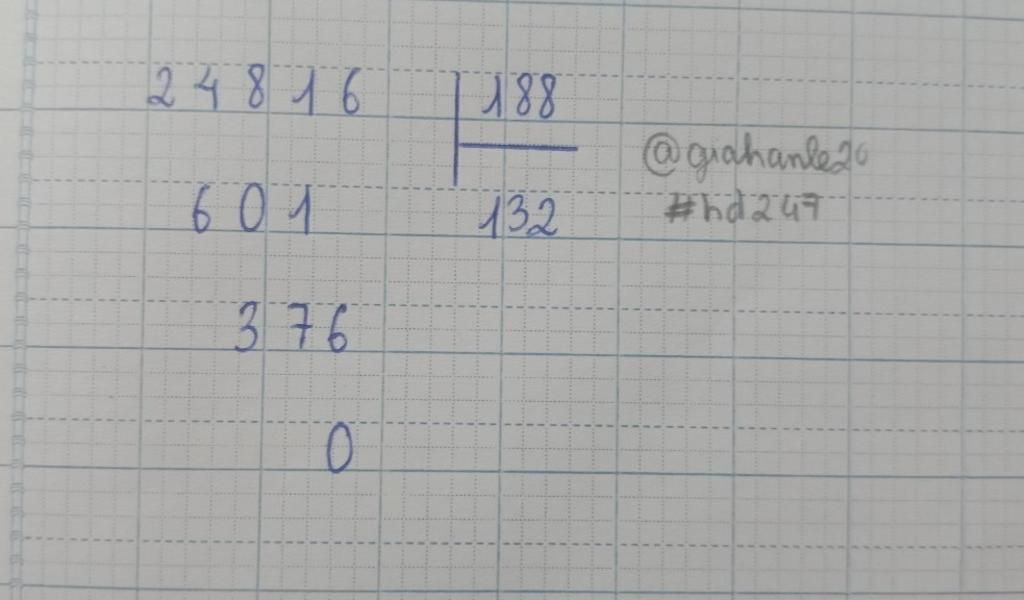 24816 188
@giahanle20
601 132
#hd247
376
0